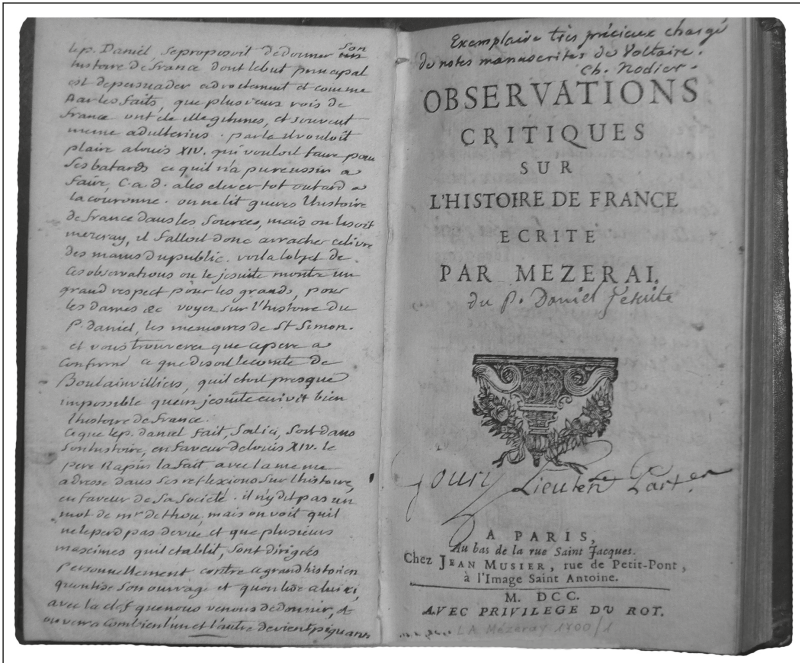 le p. Daniel se proposoit de donner son
histoire de france dont le but principal
est de persuader adroitement et comme
par les faits, que plusieurs rois de
france ont été illegitimes, et souvent
meme adulterins. par la il vouloit
plaire a louis XIV. qui vouloit faire pour
ses batards ce qu'il n'a pu reussir a
faire, c. a. d. a les elever tot ou tard a
la couronne. on ne lit guere l'histoire
de france dans les sources, mais on lisoit
mezeray, il falloit donc arracher ce livre
des mains du public. voila l'objet de
ces observations ou le jesuite montre un
grand respect pour les grands, pour
les dames &c voyez sur l'histoire du
P. daniel, les memoires de St Simon.
et vous trouverez que ce pere a
confirmé ce que disoit le comte de
Boulainvilliers, qu'il etoit presque
impossible qu'un jesuite ecrivit bien
l'histoire de france.
Ce que le p. daniel fait, ici, dans
son histoire, en faveur de louis XIV. le
pere Rapin l'a fait avec la meme
adresse dans ses reflexions sur l'histoire,
en faveur de sa société. il n'y dit pas un
mot de mr. de thou, mais on voit qu'il
ne le perd pas de vue et que plusieurs
maximes qu'il etablit, sont dirigées
personnellement contre ce grand historien
qu'on lise son ouvrage et qu'on lise celui ci,
avec la clef que nous venons de donner, &
on verra combien l'un et l'autre devient piquant
Exemplaire très précieux chargé
de notes manuscrites de Voltaire.
Ch. Nodier.
OBSERVATIONS
CRITIQUES
SUR
L'HISTOIRE DE FRANCE
ECRITE
PAR MEZERAI.
du P. Daniel Jésuite
Joury Lieuten
A PARIS,
Au bas de la rue Saint Jacques.
Chez JEAN MUSIER, rue de Petit-Pont,
à l'Image Saint Antoine.
M. DCC.
AVEC PRIVILEGE DU ROY.
LA Mézeray 1700/1